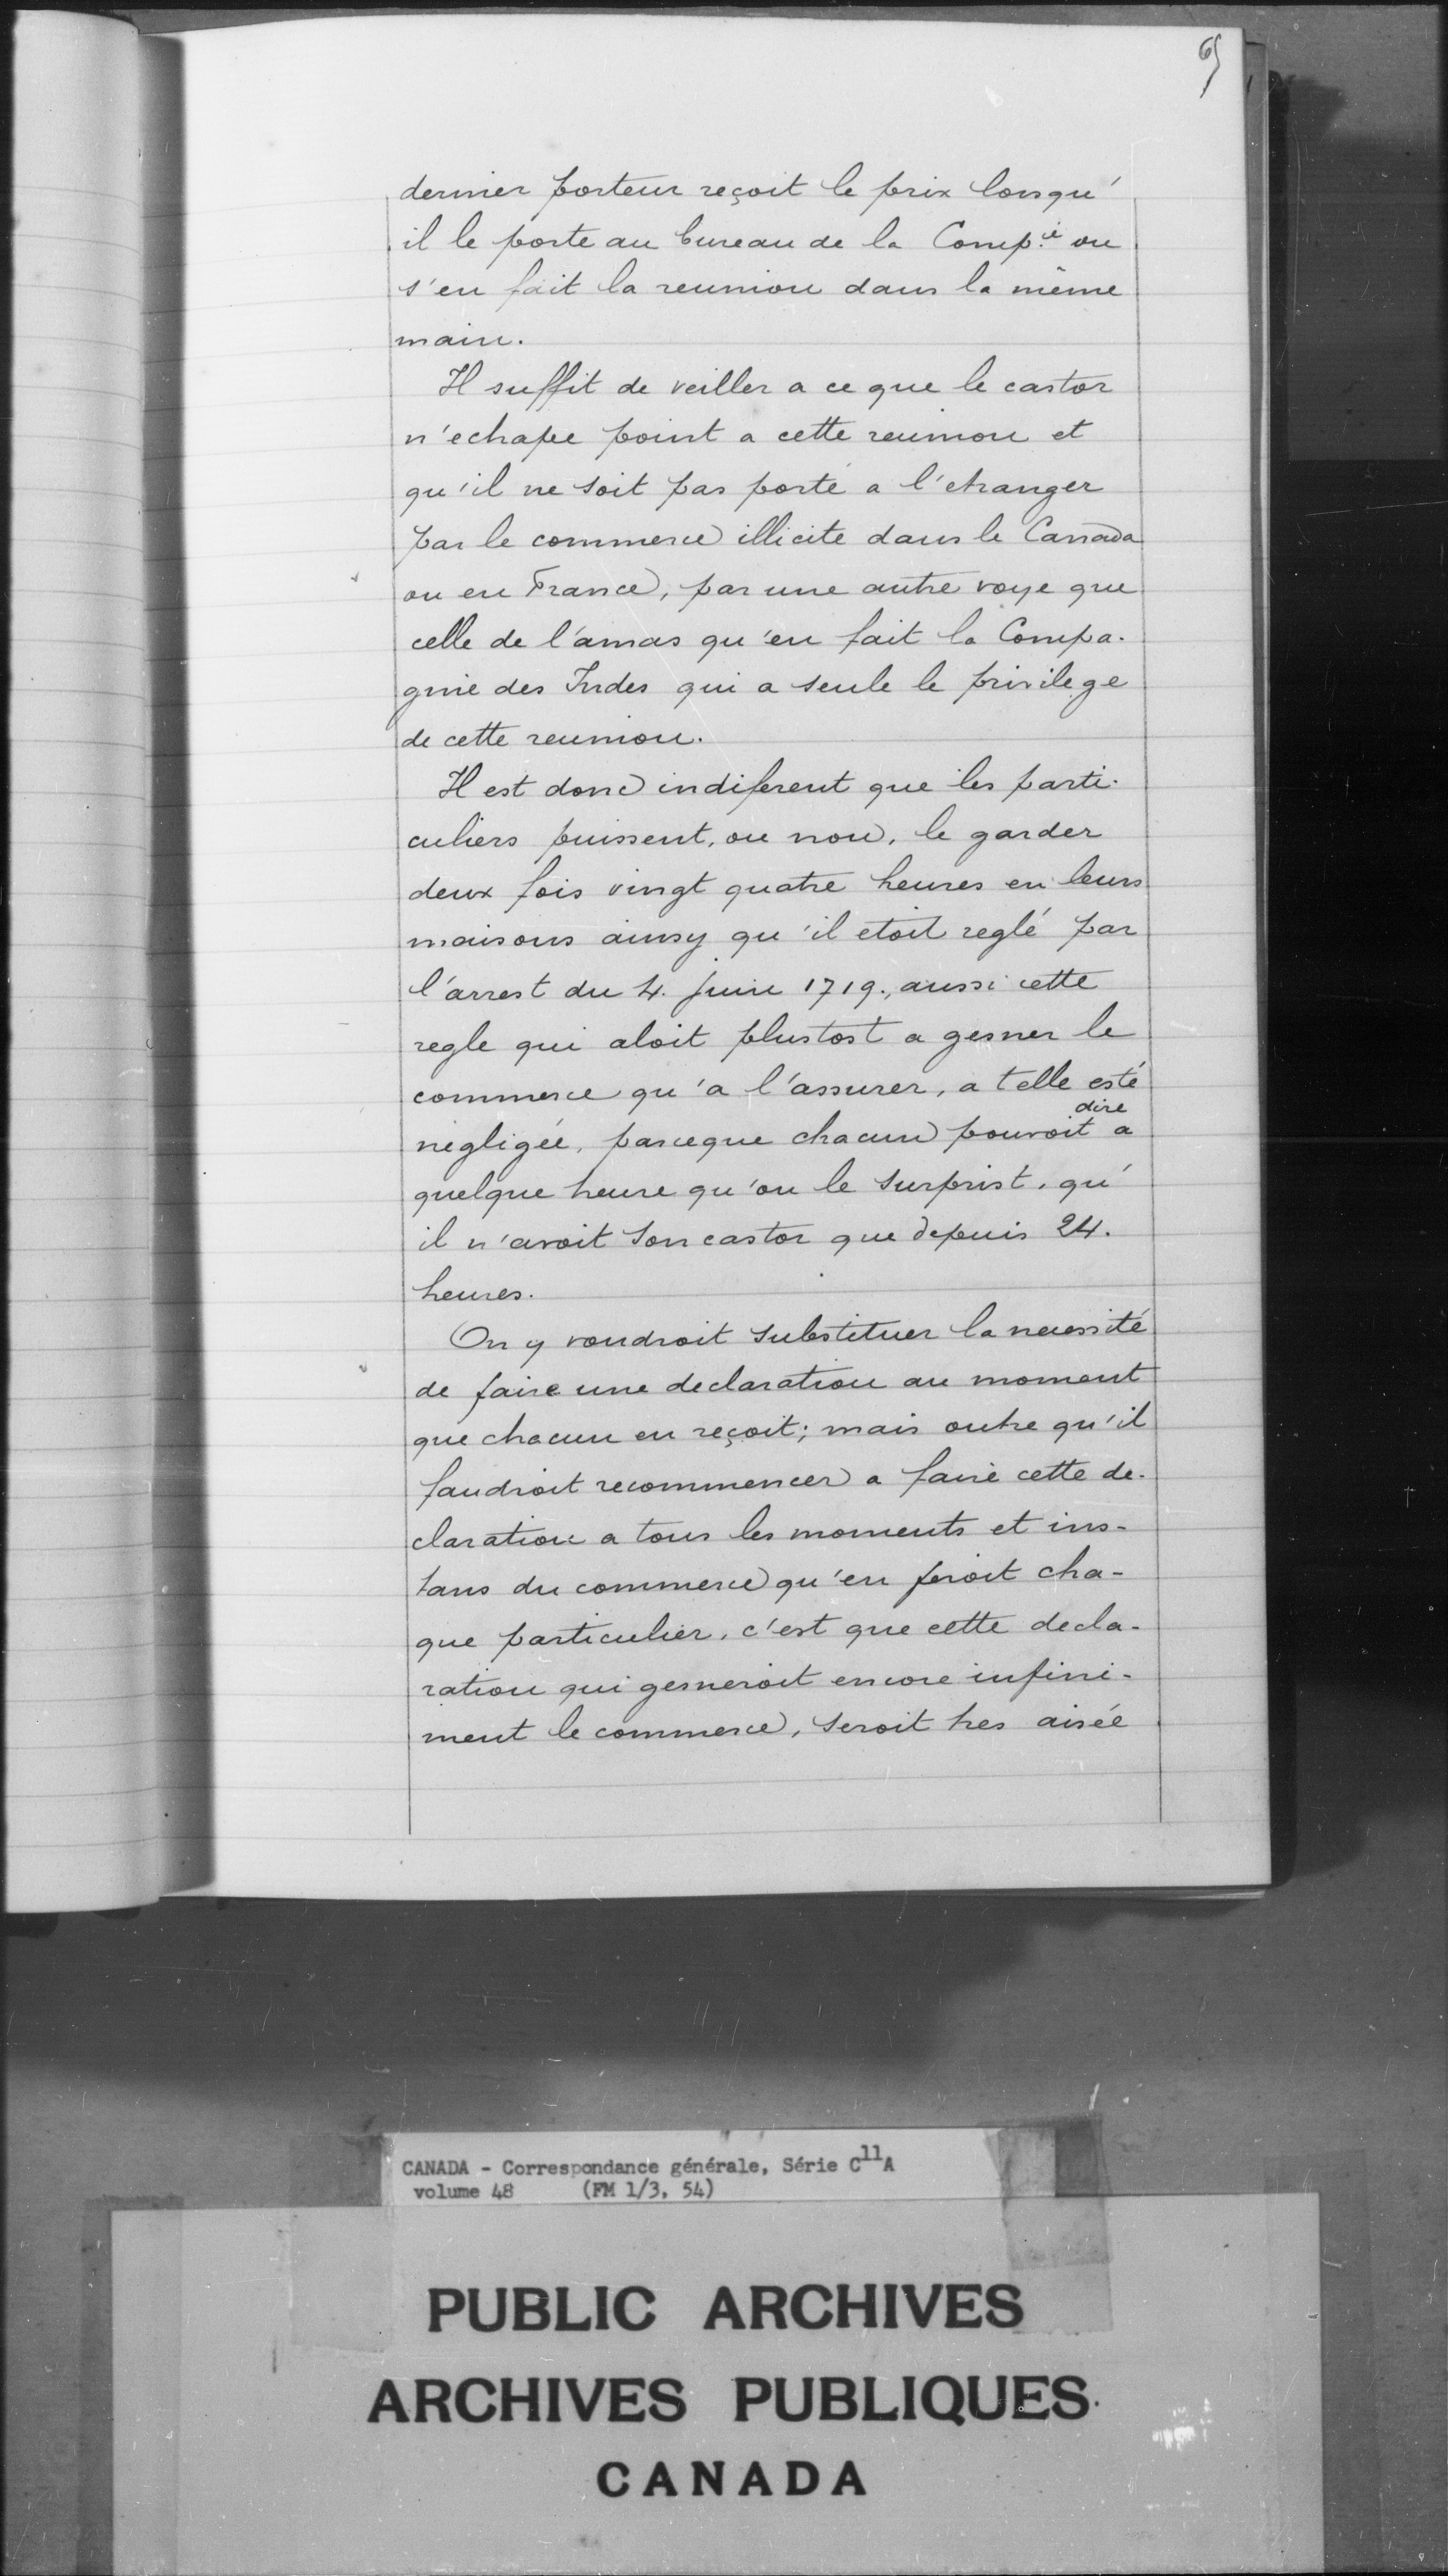 65
dernier porteur reçoit le prix lorsqu'
il le porte au bureau de la Comp.ie ou
s'en fait la reunion dans la même
main.
Il suffit de veiller a ce que le castor
n'echape point a cette reunion et
qu'il ne soit pas porté a l'etranger
par le commerce illicite dans le Canada
ou en France, par une autre voye que
celle de l'amas qu'en fait la Compa-
gnie des Indes qui a seule le privilege
de cette reunion.
Il est donc indiferent que les parti-
culiers puissent, ou non, le garder
deux fois vingt quatre heures en leurs
maisons ainsy qu'il etoit reglé par
l'arrest du 4. Juin 1719., aussi cette
regle qui aloit plustost a gesner le
commerce qu'a l'assurer, a telle esté
negligée, parceque chacun pouvoit dire a
quelque heure qu'on le surprist, qu'
il n'avoit son castor que depuis 24.
heures.
On y voudroit substituer la necessité
de faire une declaration au moment
que chacun en reçoit; mais outre qu'il
faudroit recommencer a faire cette de-
claration a tous les moments et ins-
tans du commerce qu'en feroit cha-
que particulier, c'est que cette decla-
ration qui gesneroit encore infini-
ment le commerce, seroit tres aisée
CANADA - Correspondance générale, Série C11A
volume 48 (FM 1/3, 54)
PUBLIC ARCHIVES
ARCHIVES PUBLIQUES
CANADA